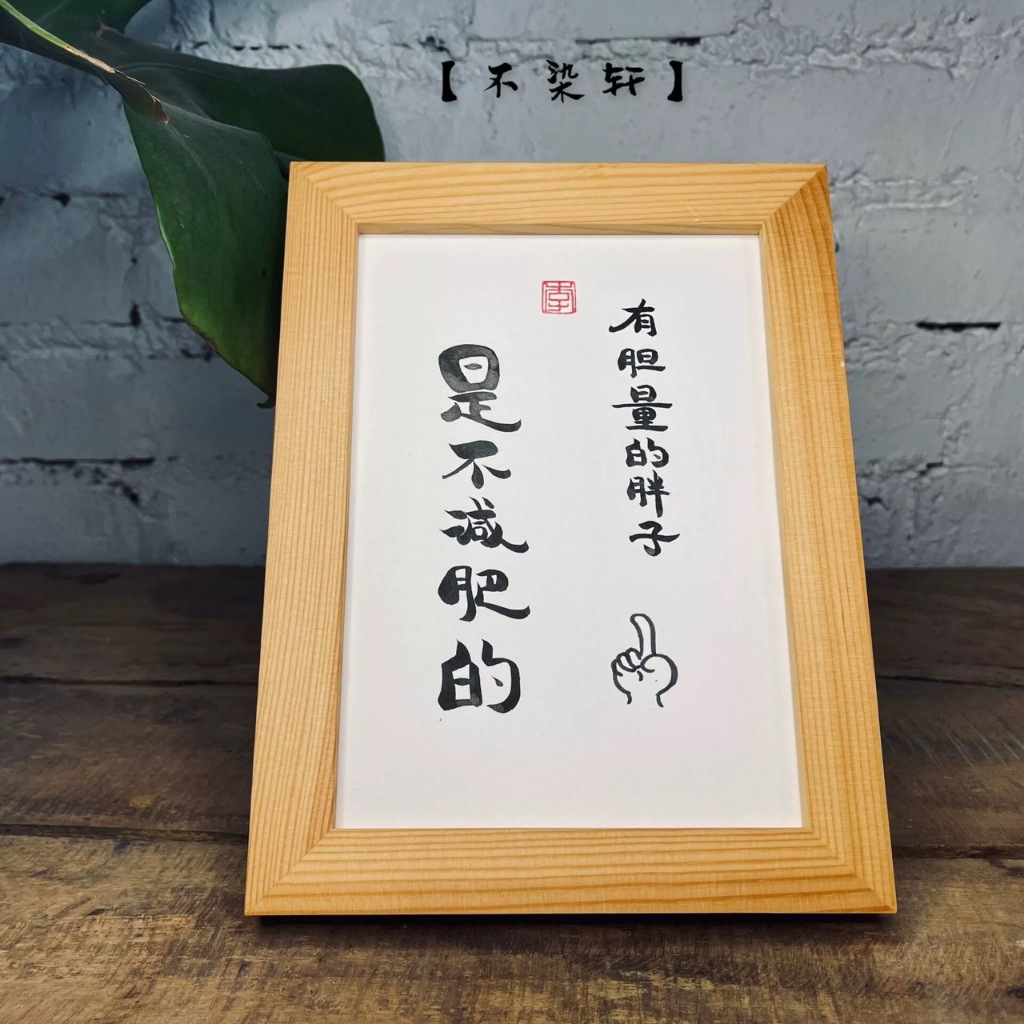 【不染轩】
有胆量的胖子
是不减肥的
李